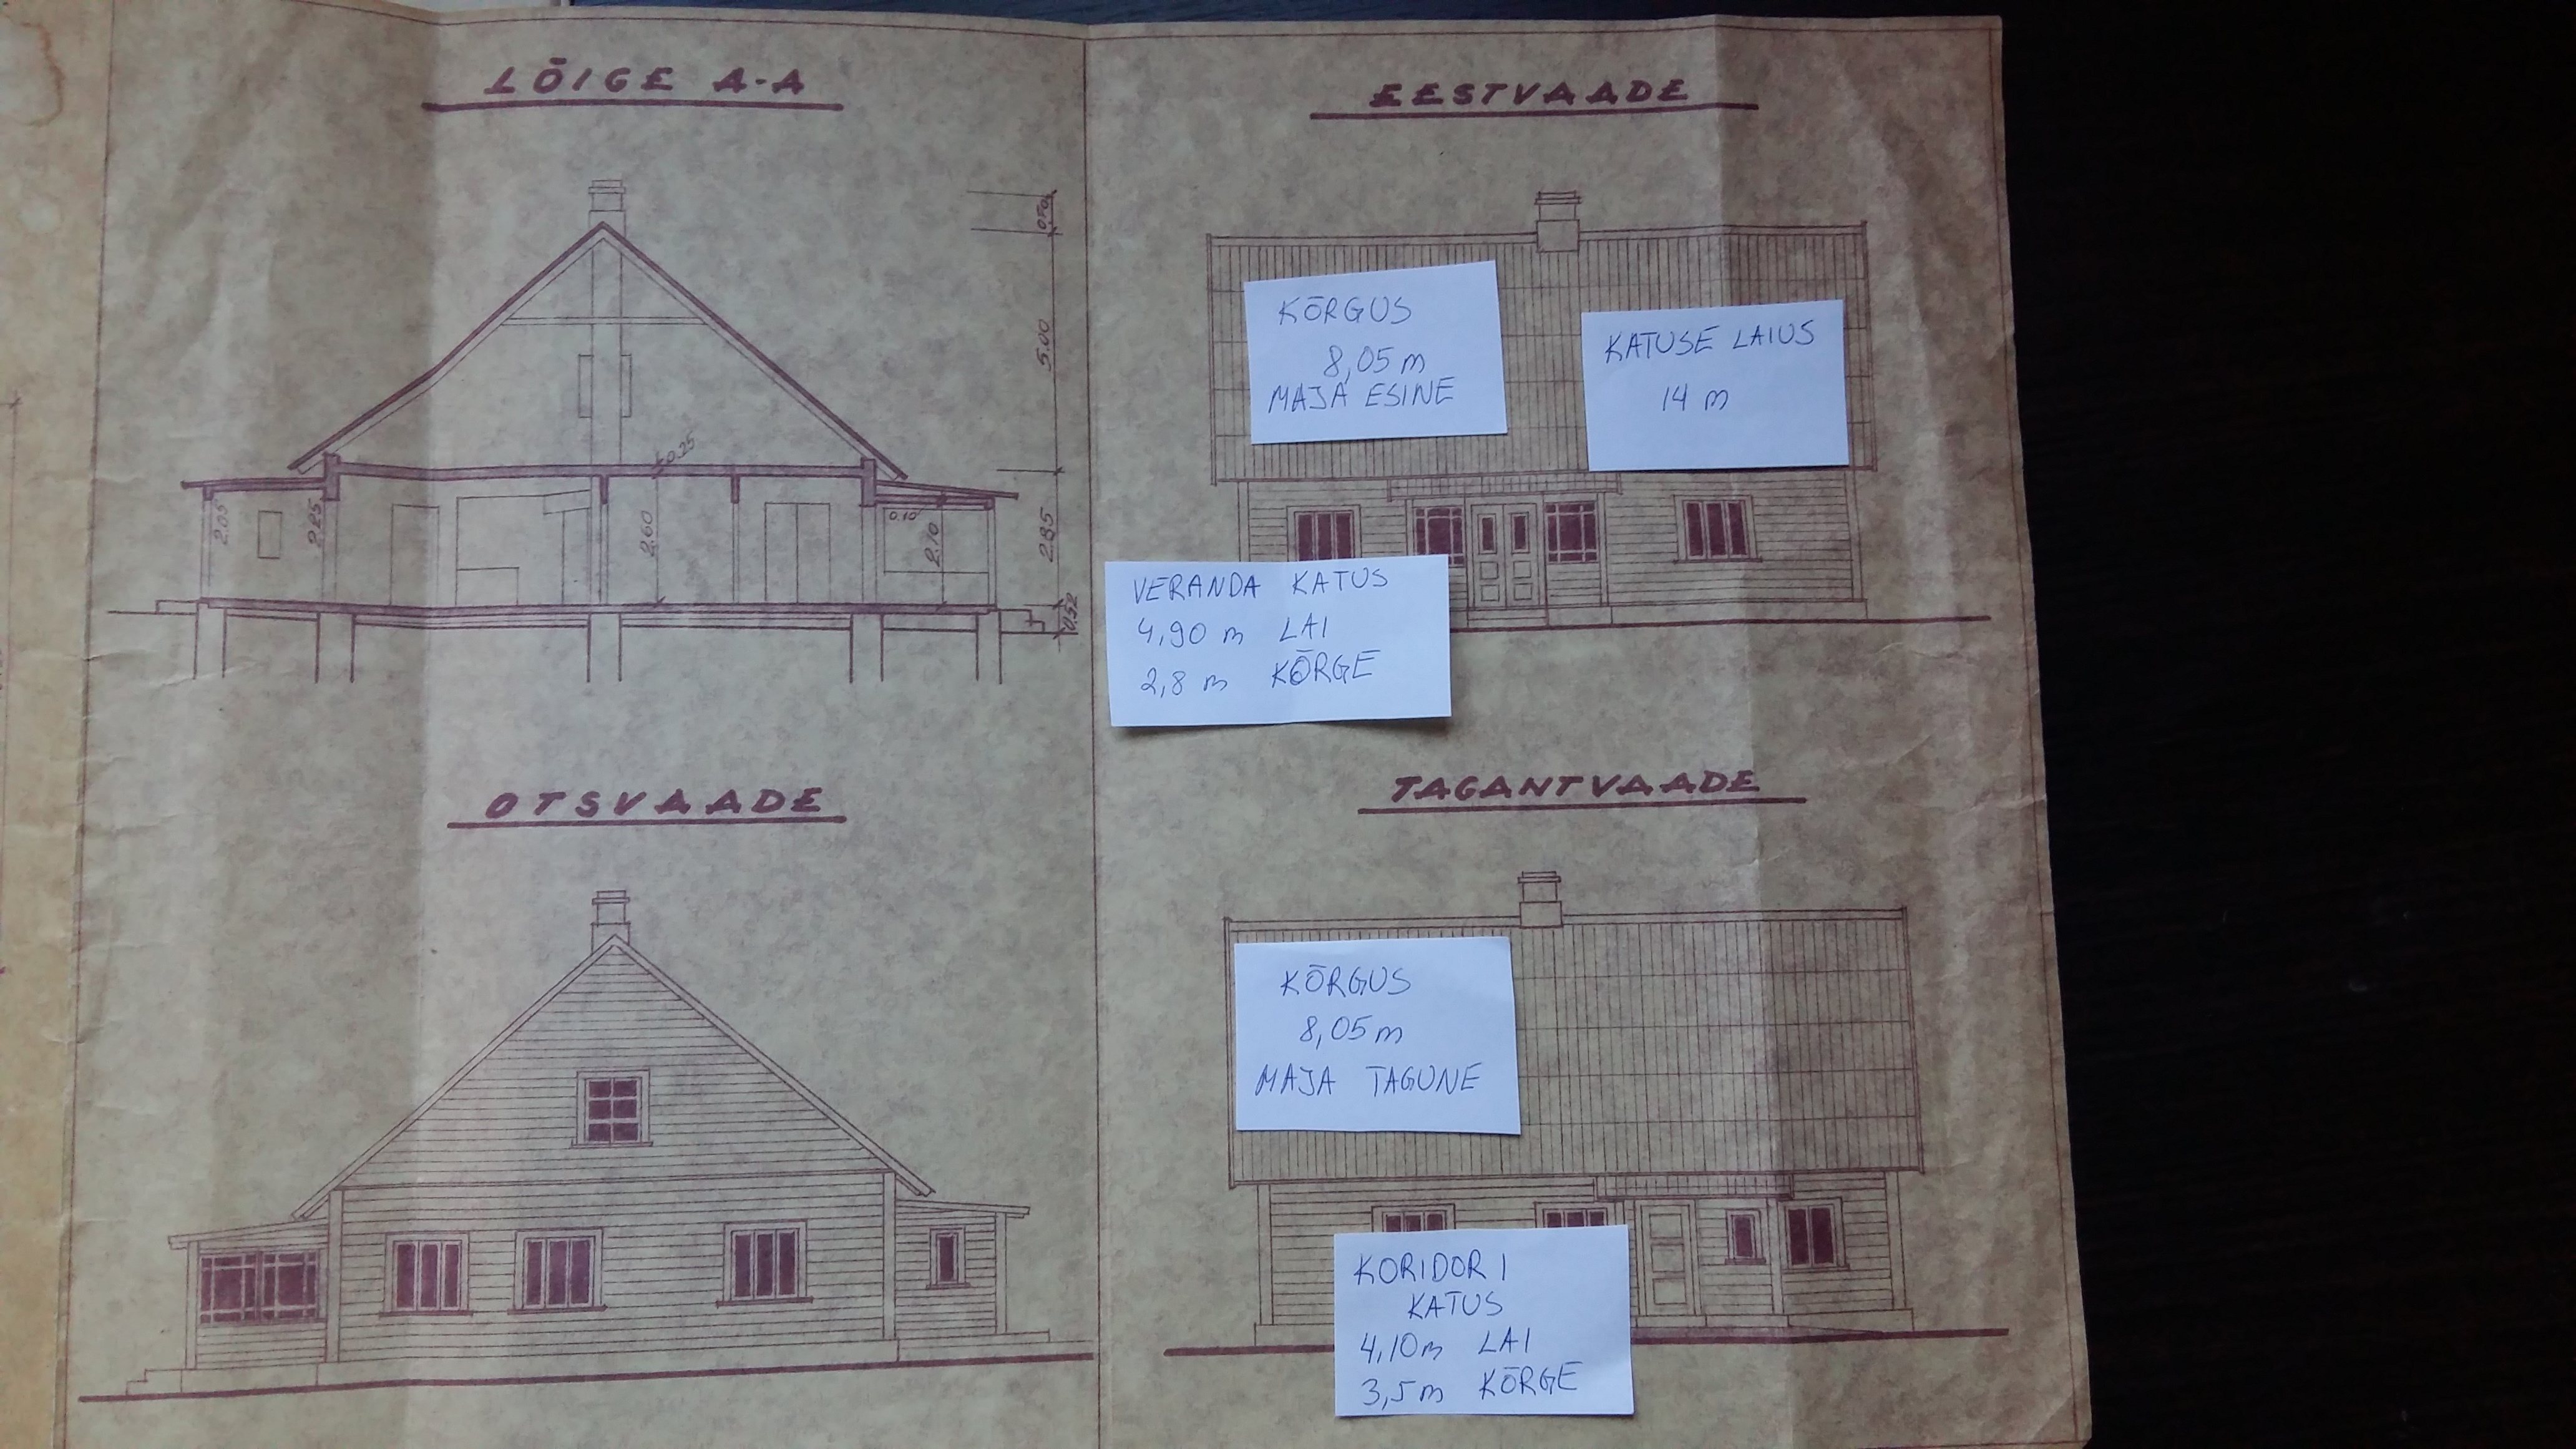 LÕIGE A-A
0.70
5.00
0.25
2.05
2.25
2.60
0.10
2.10
2.85
0.52
EESTVAADE
KÕRGUS
8,05 m
MAJA ESINE
KATUSE LAIUS
14 m
VERANDA KATUS
4,90 m LAI
2,8 m KÕRGE
OTSVAADE
TAGANTVAADE
KÕRGUS
8,05 m
MAJA TAGUNE
KORIDORI
KATUS
4,10m LAI
3,5m KÕRGE